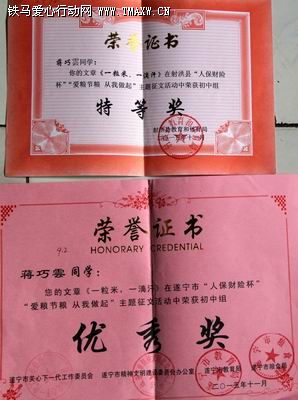 铁马爱心行动网站
荣誉证书
蒋巧雲同学：
您的文章《一粒米，一滴汗》在射洪县“人保财险
杯”“爱粮节粮 从我做起”主题征文活动中荣获初中组
特等奖
荣誉证书
HONORARY CREDENTIAL
9.2
蒋巧雲同学：
您的文章《一粒米，一滴汗》在遂宁市“人保财险杯”
“爱粮节粮 从我做起”主题征文活动中荣获初中组
优秀奖
遂宁市关心下一代工作委员会 遂宁市精神文明建设委员会办公室 遂宁市教育局 遂宁市粮食局
二○一五年十一月